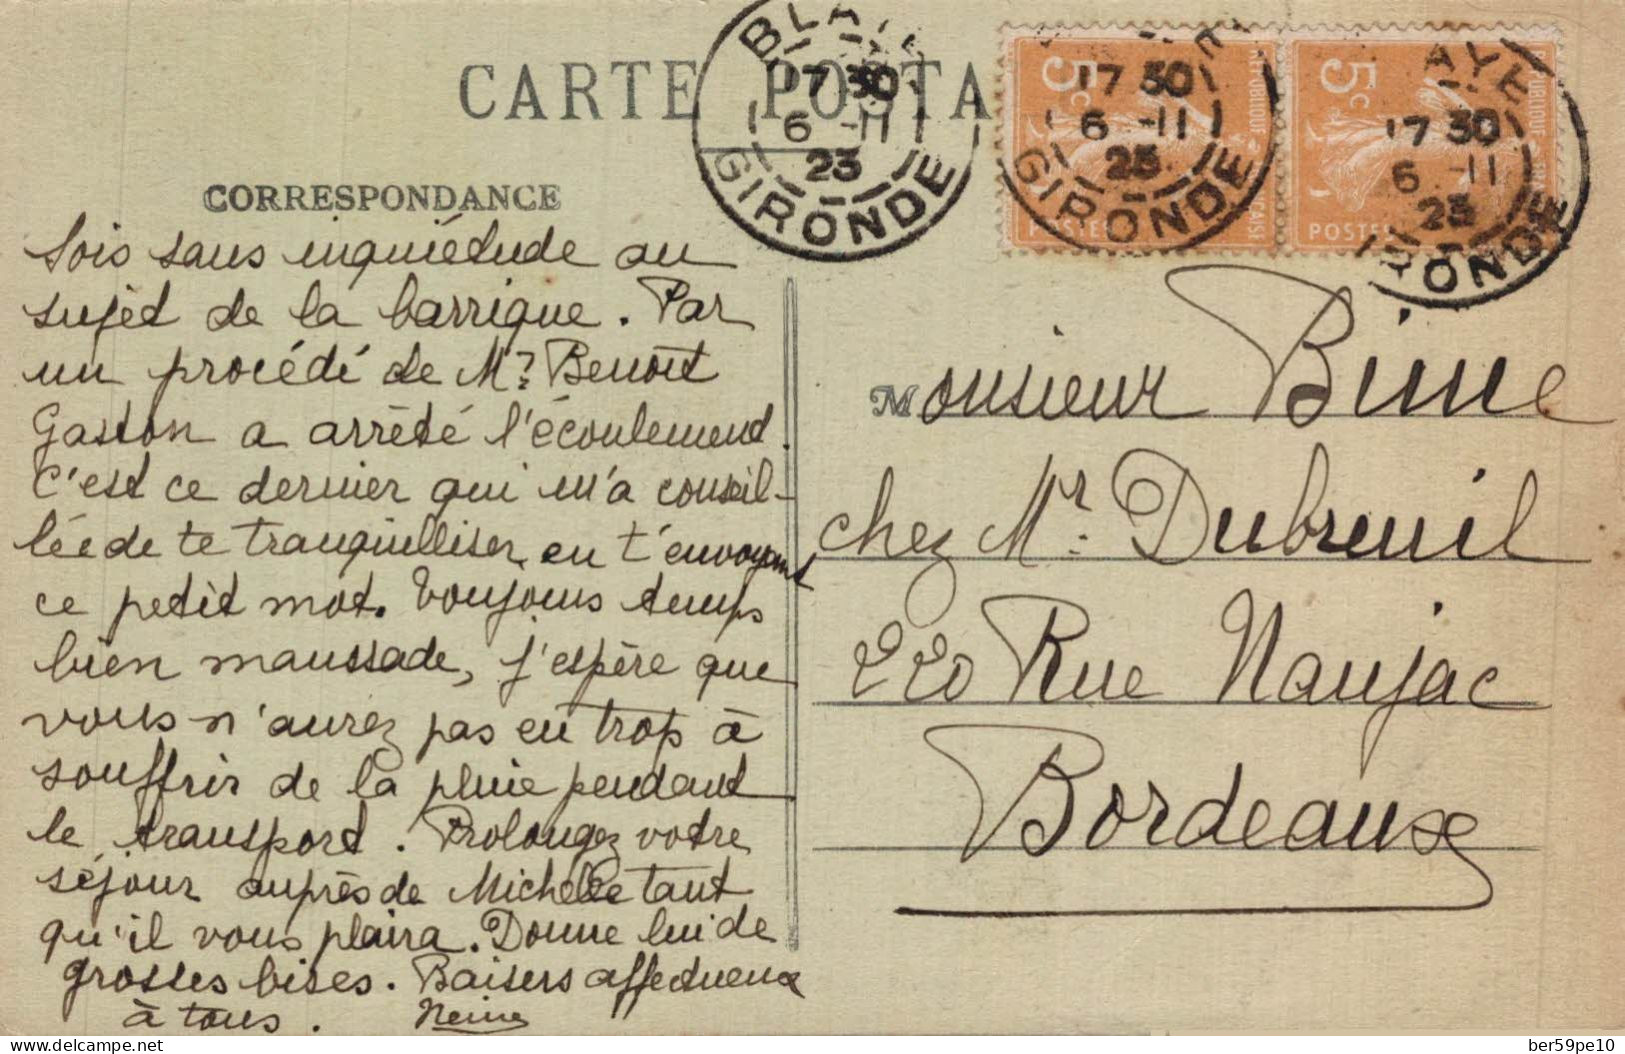 CARTE POSTA
BLAYE
17 30
6 -11
23
GIRONDE
17 30
6 -11
23
GIRONDE
AYE
17 30
6 -11
23
GIRONDE
5c
POSTES
5c
POSTES
CORRESPONDANCE
Sois sans inquiétude au
sujet de la barrique. Par
un procédé de Mr Benoît
Gaston a arrêté l'écoulement.
C'est ce dernier qui m'a conseil-
lée de te tranquilliser en t'envoyant
ce petit mot. Toujours temps
bien maussade, j'espère que
vous n'aurez pas eu trop à
souffrir de la pluie pendant
le transport. Prolongez votre
séjour auprès de Michelle tant
qu'il vous plaira. Donne lui de
grosses bises. Baisers affectueux
à tous.
Monsieur
chez Mr. Dubreuil
220 Rue Naujac
Bordeaux
delcampe.net
ber59pe10